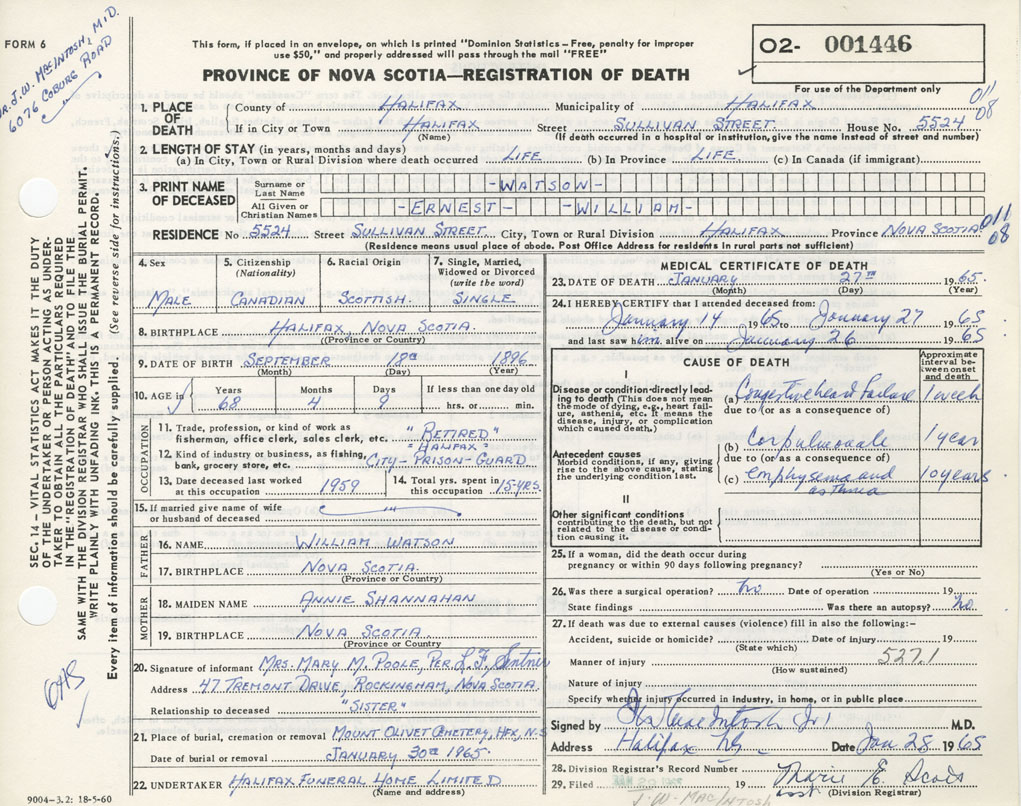 DR. J. W. MACINTOSH, M.D.
6076 COBURG ROAD
FORM 6
This form, if placed in an envelope, on which is printed "Dominion Statistics – Free, penalty for improper
use $50," and properly addressed will pass through the mail "FREE"
PROVINCE OF NOVA SCOTIA—REGISTRATION OF DEATH
O2- 001446
For use of the Department only
011
08
1. PLACE OF DEATH
County of HALIFAX Municipality of HALIFAX
If in City or Town HALIFAX Street SULLIVAN STREET House No. 5524
(Name) (If death occurred in a hospital or institution, give the name instead of street and number)
2. LENGTH OF STAY (in years, months and days)
(a) In City, Town or Rural Division where death occurred LIFE (b) In Province LIFE. (c) In Canada (if immigrant)
3. PRINT NAME OF DECEASED
Surname or Last Name -WATSON-
All Given or Christian Names -ERNEST- -WILLIAM-
RESIDENCE No 5524 Street SULLIVAN STREET City, Town or Rural Division HALIFAX Province NOVA SCOTIA
011
08
(Residence means usual place of abode. Post Office Address for residents in rural parts not sufficient)
4. Sex
MALE
5. Citizenship
(Nationality)
CANADIAN
6. Racial Origin
SCOTTISH.
7. Single, Married,
Widowed or Divorced
(write the word)
SINGLE
8. BIRTHPLACE HALIFAX, NOVA SCOTIA.
(Province or Country)
9. DATE OF BIRTH SEPTEMBER 18th 1896
(Month) (Day) (Year)
10. AGE in
Years Months Days If less than one day old
68 4 9 hrs. or min.
OCCUPATION
11. Trade, profession, or kind of work as
fisherman, office clerk, sales clerk, etc. "RETIRED"
12. Kind of industry or business, as fishing,
bank, grocery store, etc. "HALIFAX
CITY-PRISON-GUARD
13. Date deceased last worked
at this occupation 1959
14. Total yrs. spent in
this occupation 15-YRS.
15. If married give name of wife
or husband of deceased
FATHER
16. NAME WILLIAM WATSON
17. BIRTHPLACE NOVA SCOTIA
(Province or Country)
MOTHER
18. MAIDEN NAME ANNIE SHANNAHAN
19. BIRTHPLACE NOVA SCOTIA
(Province or Country)
20. Signature of informant MRS. MARY M. POOLE, PER. L.F.
Address 47 TREMONT DRIVE, ROCKINGHAM, NOVA SCOTIA.
Relationship to deceased "SISTER"
21. Place of burial, cremation or removal MOUNT OLIVET CEMETERY, HFX, N.S
Date of burial or removal JANUARY 30th 1965.
22. UNDERTAKER HALIFAX FUNERAL HOME LIMITED
(Name and address)
9004–3.2: 18-5-60
MEDICAL CERTIFICATE OF DEATH
23. DATE OF DEATH JANUARY 27th 1965.
(Month) (Day) (Year)
24. I HEREBY CERTIFY that I attended deceased from:
January 14 1965 to January 27 1965
and last saw him alive on January 26 1965
CAUSE OF DEATH
Approximate
interval be-
tween onset
and death
I
Disease or condition directly lead-
ing to death (This does not mean
the mode of dying, e.g., heart fail-
ure, asthenia, etc. It means the
disease, injury, or complication
which caused death.)
(a) Congestive heart Failure 1 week
due to (or as a consequence of)
Antecedent causes
Morbid conditions, if any, giving
rise to the above cause, stating
the underlying condition last.
(b) Cor pulmonale 1 year
due to (or as a consequence of)
(c) emphysema and 10 years
asthma
II
Other significant conditions
contributing to the death, but not
related to the disease or condi-
tion causing it.
25. If a woman, did the death occur during
pregnancy or within 90 days following pregnancy?
(Yes or No)
26. Was there a surgical operation? no Date of operation 19
State findings Was there an autopsy? no
27. If death was due to external causes (violence) fill in also the following:–
Accident, suicide or homicide? Date of injury 19
(State which)
527.1
Manner of injury
(How sustained)
Nature of injury
Specify whether injury occurred in industry, in home, or in public place
Signed by J W MacIntosh Jr M.D.
Address Halifax NS Date Jan 28 1965
28. Division Registrar's Record Number
29. Filed 19 Marie E.
(Division Registrar)
J. W. MACINTOSH
SEC. 14 – VITAL STATISTICS ACT MAKES IT THE DUTY
OF THE UNDERTAKER OR PERSON ACTING AS UNDER-
TAKER TO OBTAIN ALL THE PARTICULARS REQUIRED
IN THE "REGISTRATION OF DEATH" AND TO FILE THE
SAME WITH THE DIVISION REGISTRAR WHO SHALL ISSUE THE BURIAL PERMIT.
WRITE PLAINLY WITH UNFADING INK. THIS IS A PERMANENT RECORD.
Every item of information should be carefully supplied. (See reverse side for instructions.)